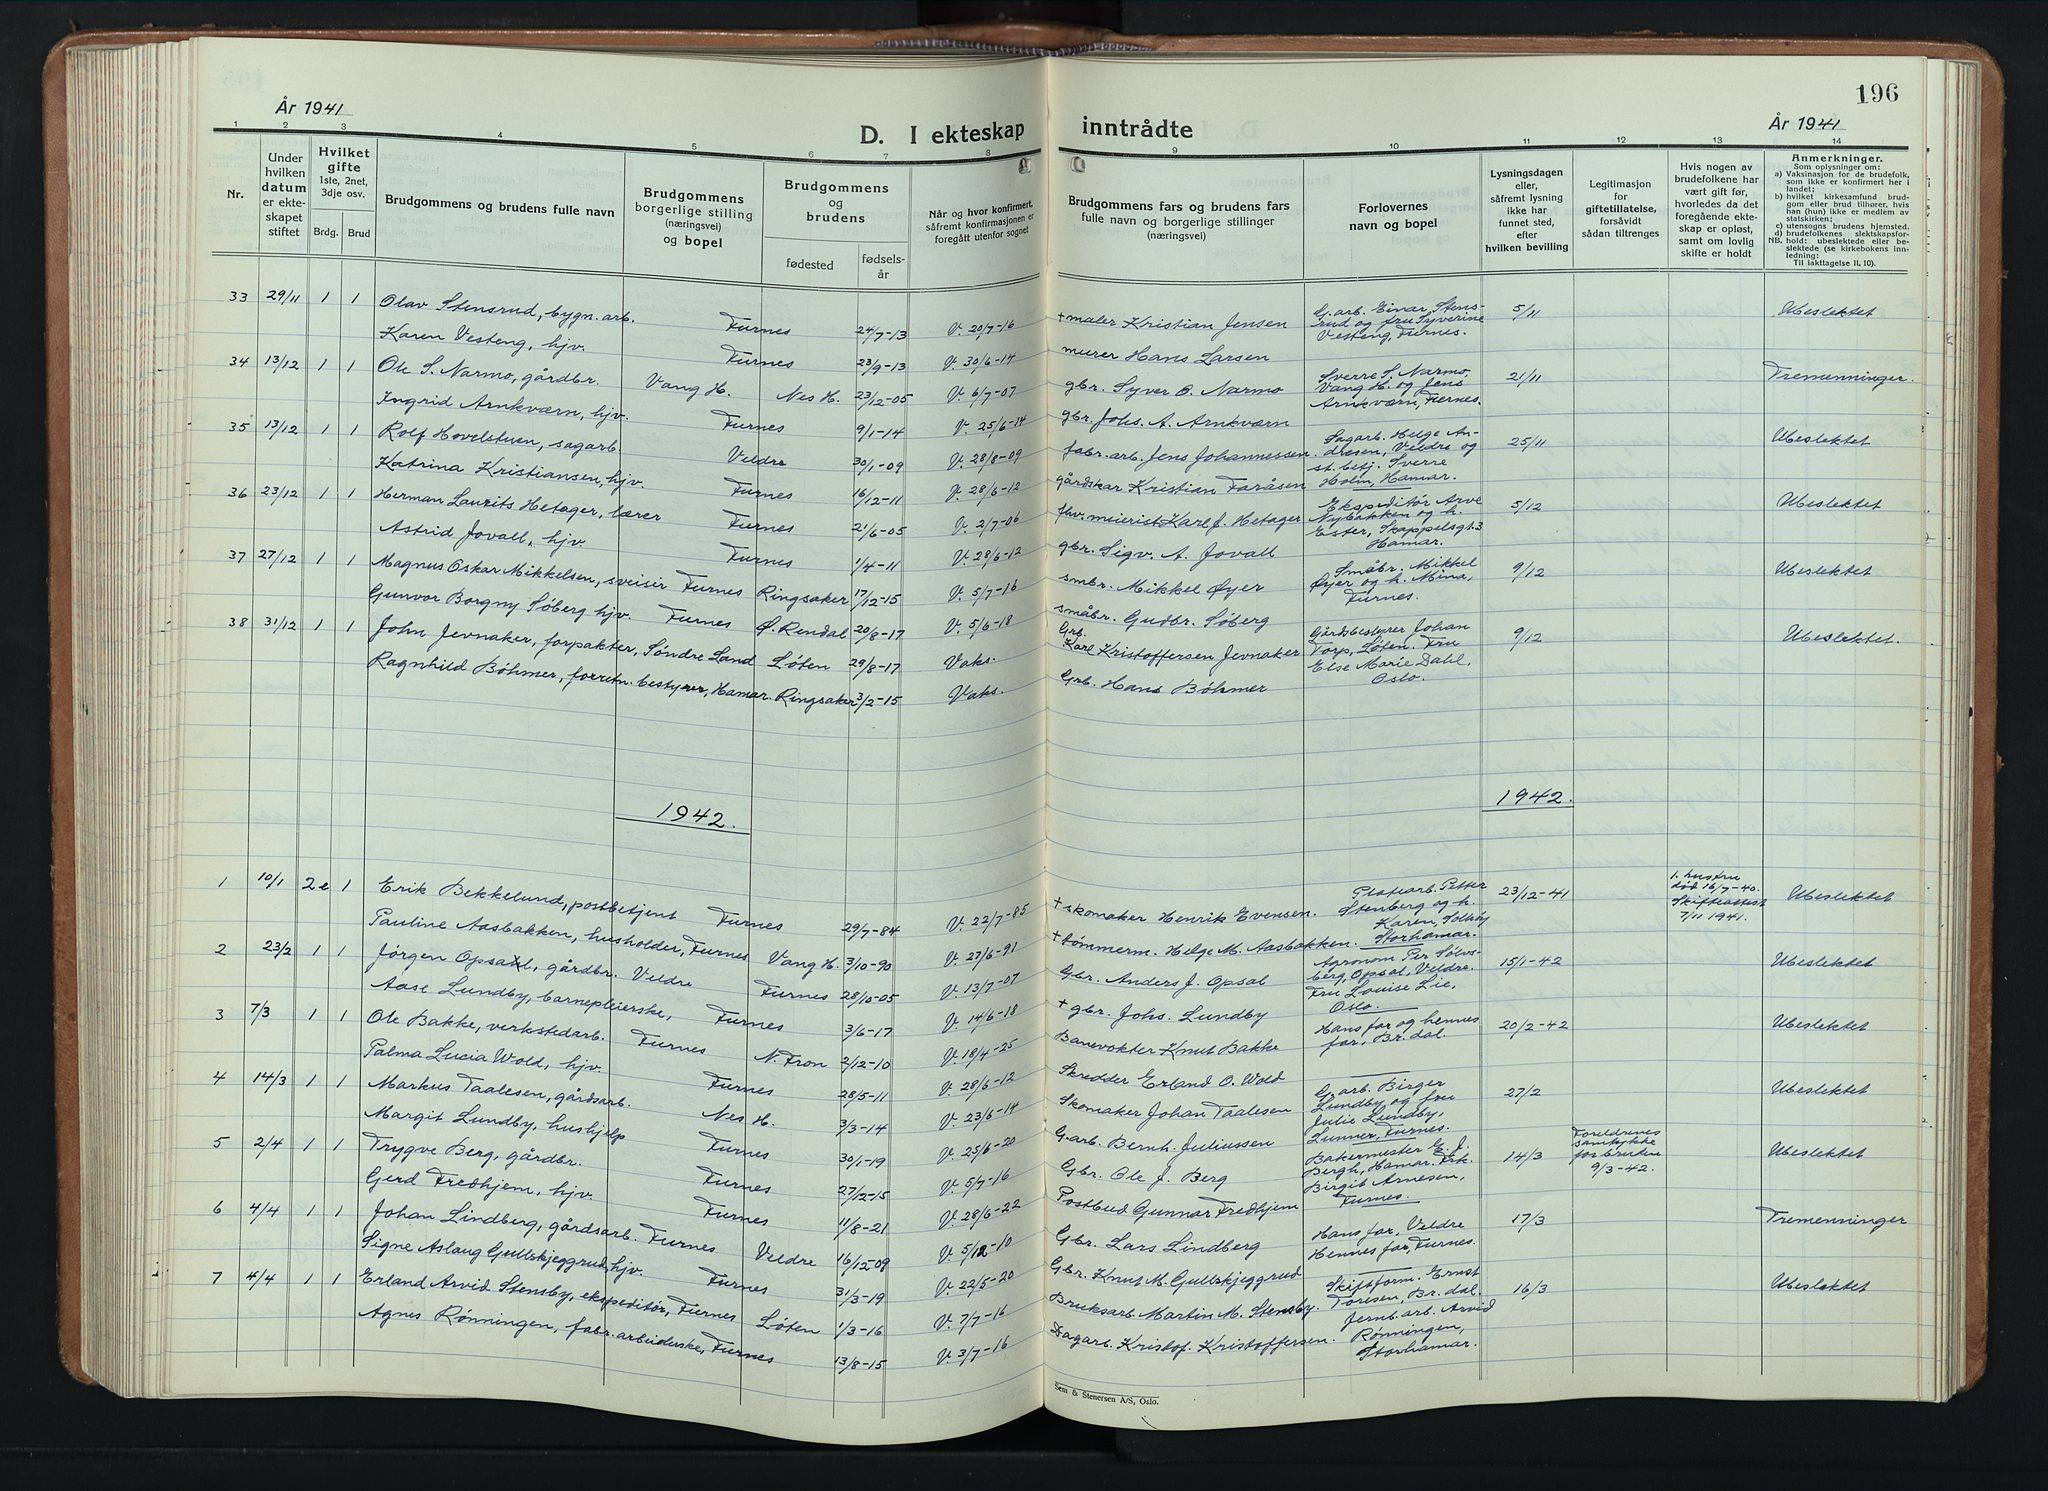 196
År 1941
D. I ekteskap inntrådte
År 1941
1 2 3 4 5 6 7 8 9 10 11 12 13 14
Nr.
Under hvilken datum er ekteskapet stiftet
Hvilket gifte 1ste, 2net, 3dje osv.
Brdg. Brud
Brudgommens og brudens fulle navn
Brudgommens borgerlige stilling (næringsvei) og bopel
Brudgommens og brudens
fødested
fødselsår
Når og hvor konfirmert, såfremt konfirmasjonen er foregått utenfor sognet
Brudgommens fars og brudens fars fulle navn og borgerlige stillinger (næringsvei)
Forlovernes navn og bopel
Lysningsdagen eller, såfremt lysning ikke har funnet sted, efter hvilken bevilling
Legitimasjon for giftetillatelse, forsåvidt sådan tiltrenges
Hvis nogen av brudefolkene har vært gift før, hvorledes da det foregående ekteskap er opløst, samt om lovlig skifte er holdt
Anmerkninger.
Som oplysninger om:
a) Vaksinasjon for de brudefolk, som ikke er konfirmert her i landet;
b) hvilket kirkesamfund brudgom eller brud tilhører, hvis han (hun) ikke er medlem av statskirken;
c) utensogns brudens hjemsted.
d) brudefolkenes slektskapsforhold: ubeslektede eller beslektede (se kirkebokens innledning:
NB.
Til iakttagelse II. 10).
33 29/11 1 1 Olav Stensrud, bygn. arb. Furnes 24/7-13 V. 20/7-16 + maler Kristian Jensen G.arb. Einar Stensrud og fru Syverine Vesteng, Furnes. 5/11 Ubeslektet
Karen Vesteng, hjv. Furnes 23/9-13 V. 30/6-14 murer Hans Larsen
34 13/12 1 1 Ole S. Narmo, gårdbr. Vang H. Nes H. 23/12-05 V. 6/7-07 gbr. Syver O. Narmo Sverre S. Narmo, Vang H. og Jens Arnkværn, Furnes. 21/11 Tremenninger.
Ingrid Arnkværn, hjv. Furnes 9/1-14 V. 25/6-14 gbr. Johs. A. Arnkværn
35 13/12 1 1 Rolf Hovelstuen, sagarb. Veldre 30/1-09 V. 28/8-09 fabr. arb. Jens Johannessen. Sagarb. Helge Andresen, Veldre og st. betj. Sverre Holm, Hamar. 25/11 Ubeslektet
Katrina Kristiansen, hjv. Furnes 16/12-11 V. 28/6-12 gårdskar Kristian Faråsen
36 23/12 1 1 Herman Laurits Hetager, lærer Furnes 21/6-05 V. 2/7-06 fhv. meierist Karl J. Hetager Ekspeditør Arve Nybakken og h. Ester, Skappelsgt. 3 Hamar. 5/12 Ubeslektet
Astrid Jovall, hjv. Furnes 1/4-11 V. 28/6-12 gbr. Sigv. A. Jovall
37 27/12 1 1 Magnus Oskar Mikkelsen, sveisir Furnes Ringsaker 17/12-15 V. 5/7-16 smbr. Mikkel Øyer Småbr. Mikkel Øyer og h. Mina, Furnes. 9/12 Ubeslektet
Gunvor Borgny Søberg hjv. Furnes Ø. Rendal 20/8-17 V. 5/6-18 småbr. Gudbr. Søberg
38 31/12 1 1 John Jevnaker, forpakter, Søndre Land Løten 29/8-17 Vaks. Grb. Karl Kristoffersen Jevnaker Gårdsbestyrer Johan Torp, Løten. Fru Else Marie Dahl, Oslo. 9/12 Ubeslektet.
Ragnhild Bøhmer, forretn. bestyrer, Hamar. Ringsaker 3/2-15 Vaks. Grb. Hans Bøhmer
1942. 1942.
1 10/1 2e 1 Erik Bekkelund, postbetjent Furnes 29/7-84 V. 22/7-85 + skomaker Henrik Evensen. Platearb. Petter Stenberg og h. Karen, Solhøy Storhamar. 23/12-41 1. hustru død 16/7-40. Skifteattest 7/11 1941. Ubeslektet
Pauline Aasbakken, husholder, Furnes Vang H. 3/10-90 V. 27/6-91 + tømmerm. Helge M. Aasbakken.
2 23/2 1 1 Jørgen Opsahl, gårdbr. Veldre Furnes 28/10-05 V. 13/7-07 Gbr. Anders J. Opsal Agronom Per Sølvsberg, Opsal, Veldre. Fru Louise Lie, Oslo. 15/1-42 Ubeslektet
Aase Lundby, barnepleierske, Furnes 3/6-17 V. 14/6-18 + gbr. Johs. Lundby
3 7/3 1 1 Ole Bakke, verkstedarb. Furnes N. Fron 2/12-10 V. 18/4-25 Banevokter Knut Bakke Hans far og hennes far, Br. dal. 20/2-42 Ubeslektet
Palma Lucia Wold, hjv. Furnes 28/5-11 V. 28/6-12 Skredder Erland O. Wold
4 14/3 1 1 Markus Taalesen, gårdsarb. Nes H. 3/3-14 V. 23/6-14 Skomaker Johan Taalesen G.arb. Birger Lundby og fru Julie Lundby, Lunner, Furnes. 27/2 Ubeslektet
Margit Lundby, hushjelp Furnes 30/1-19 V. 25/6-20 G.arb. Bernh. Juliussen
5 2/4 1 1 Trygve Berg, gårdbr. Furnes 27/12-15 V. 5/7-16 Gbr. Ole J. Berg Bakermester E. J. Bergh, Hamar. Frk. Birgit Arnesen, Furnes. 14/3 Foreldrenes samtykke for bruden 9/3-42. Ubeslektet
Gerd Fredhjem, hjv. Furnes 11/8-21 V. 28/6-22 Postbud Gunnar Fredhjem
6 4/4 1 1 Johan Lindberg, gårdsarb. Furnes Veldre 16/12-09 V. 5/12-10 Gbr. Lars Lindberg Hans far, Veldre Hennes far, Furnes. 17/3 Tremenninger
Signe Aslaug Gullskjeggrud, hjv. Furnes 31/3-19 V. 22/5-20 Gbr. Knut M. Gullskjeggrud
7 4/4 1 1 Erland Arvid Stensby, ekspeditør, Furnes Løten 1/3-16 V. 7/7-16 Bruksarb. Martin M. Stensby. Skiftform. Ernst Toresen, Br. dal. Jernb. arb. Arvid Rønningen, Storhamar. 16/3 Ubeslektet
Agnes Rønningen, fabr. arbeiderske, Furnes 13/8-15 V. 3/7-16 Dagarb. Kristof. Kristoffersen.
Sem & Stenersen A/S, Oslo.